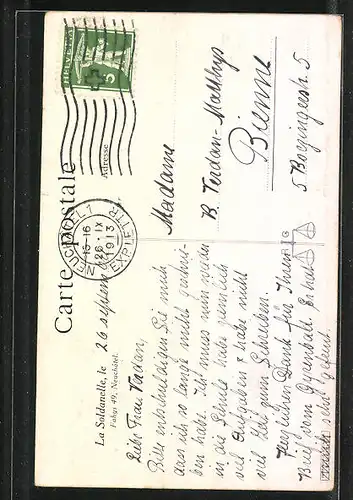 Carte postale
HELVETIA
5
NEUCHATEL 1
15-16
26.IX
1913
EXP. LETTR.
Adresse
La Soldanelle, le 26 septem
Fahys 49, Neuchâtel.
Liebe Frau
Bitte entschuldigen Sie mich
dass ich so lange nicht geschrie-
ben habe. Ich muss nun wieder
in die Schule habe ziemlich
viel Aufgaben & habe nicht
viel Zeit zum Schreiben.
Herzlichen Dank für Ihren
Brief vom
mich sehr gefreut.
Madame
B. Verdan-Matthys
Bienne
5 Bözingerstr. 5